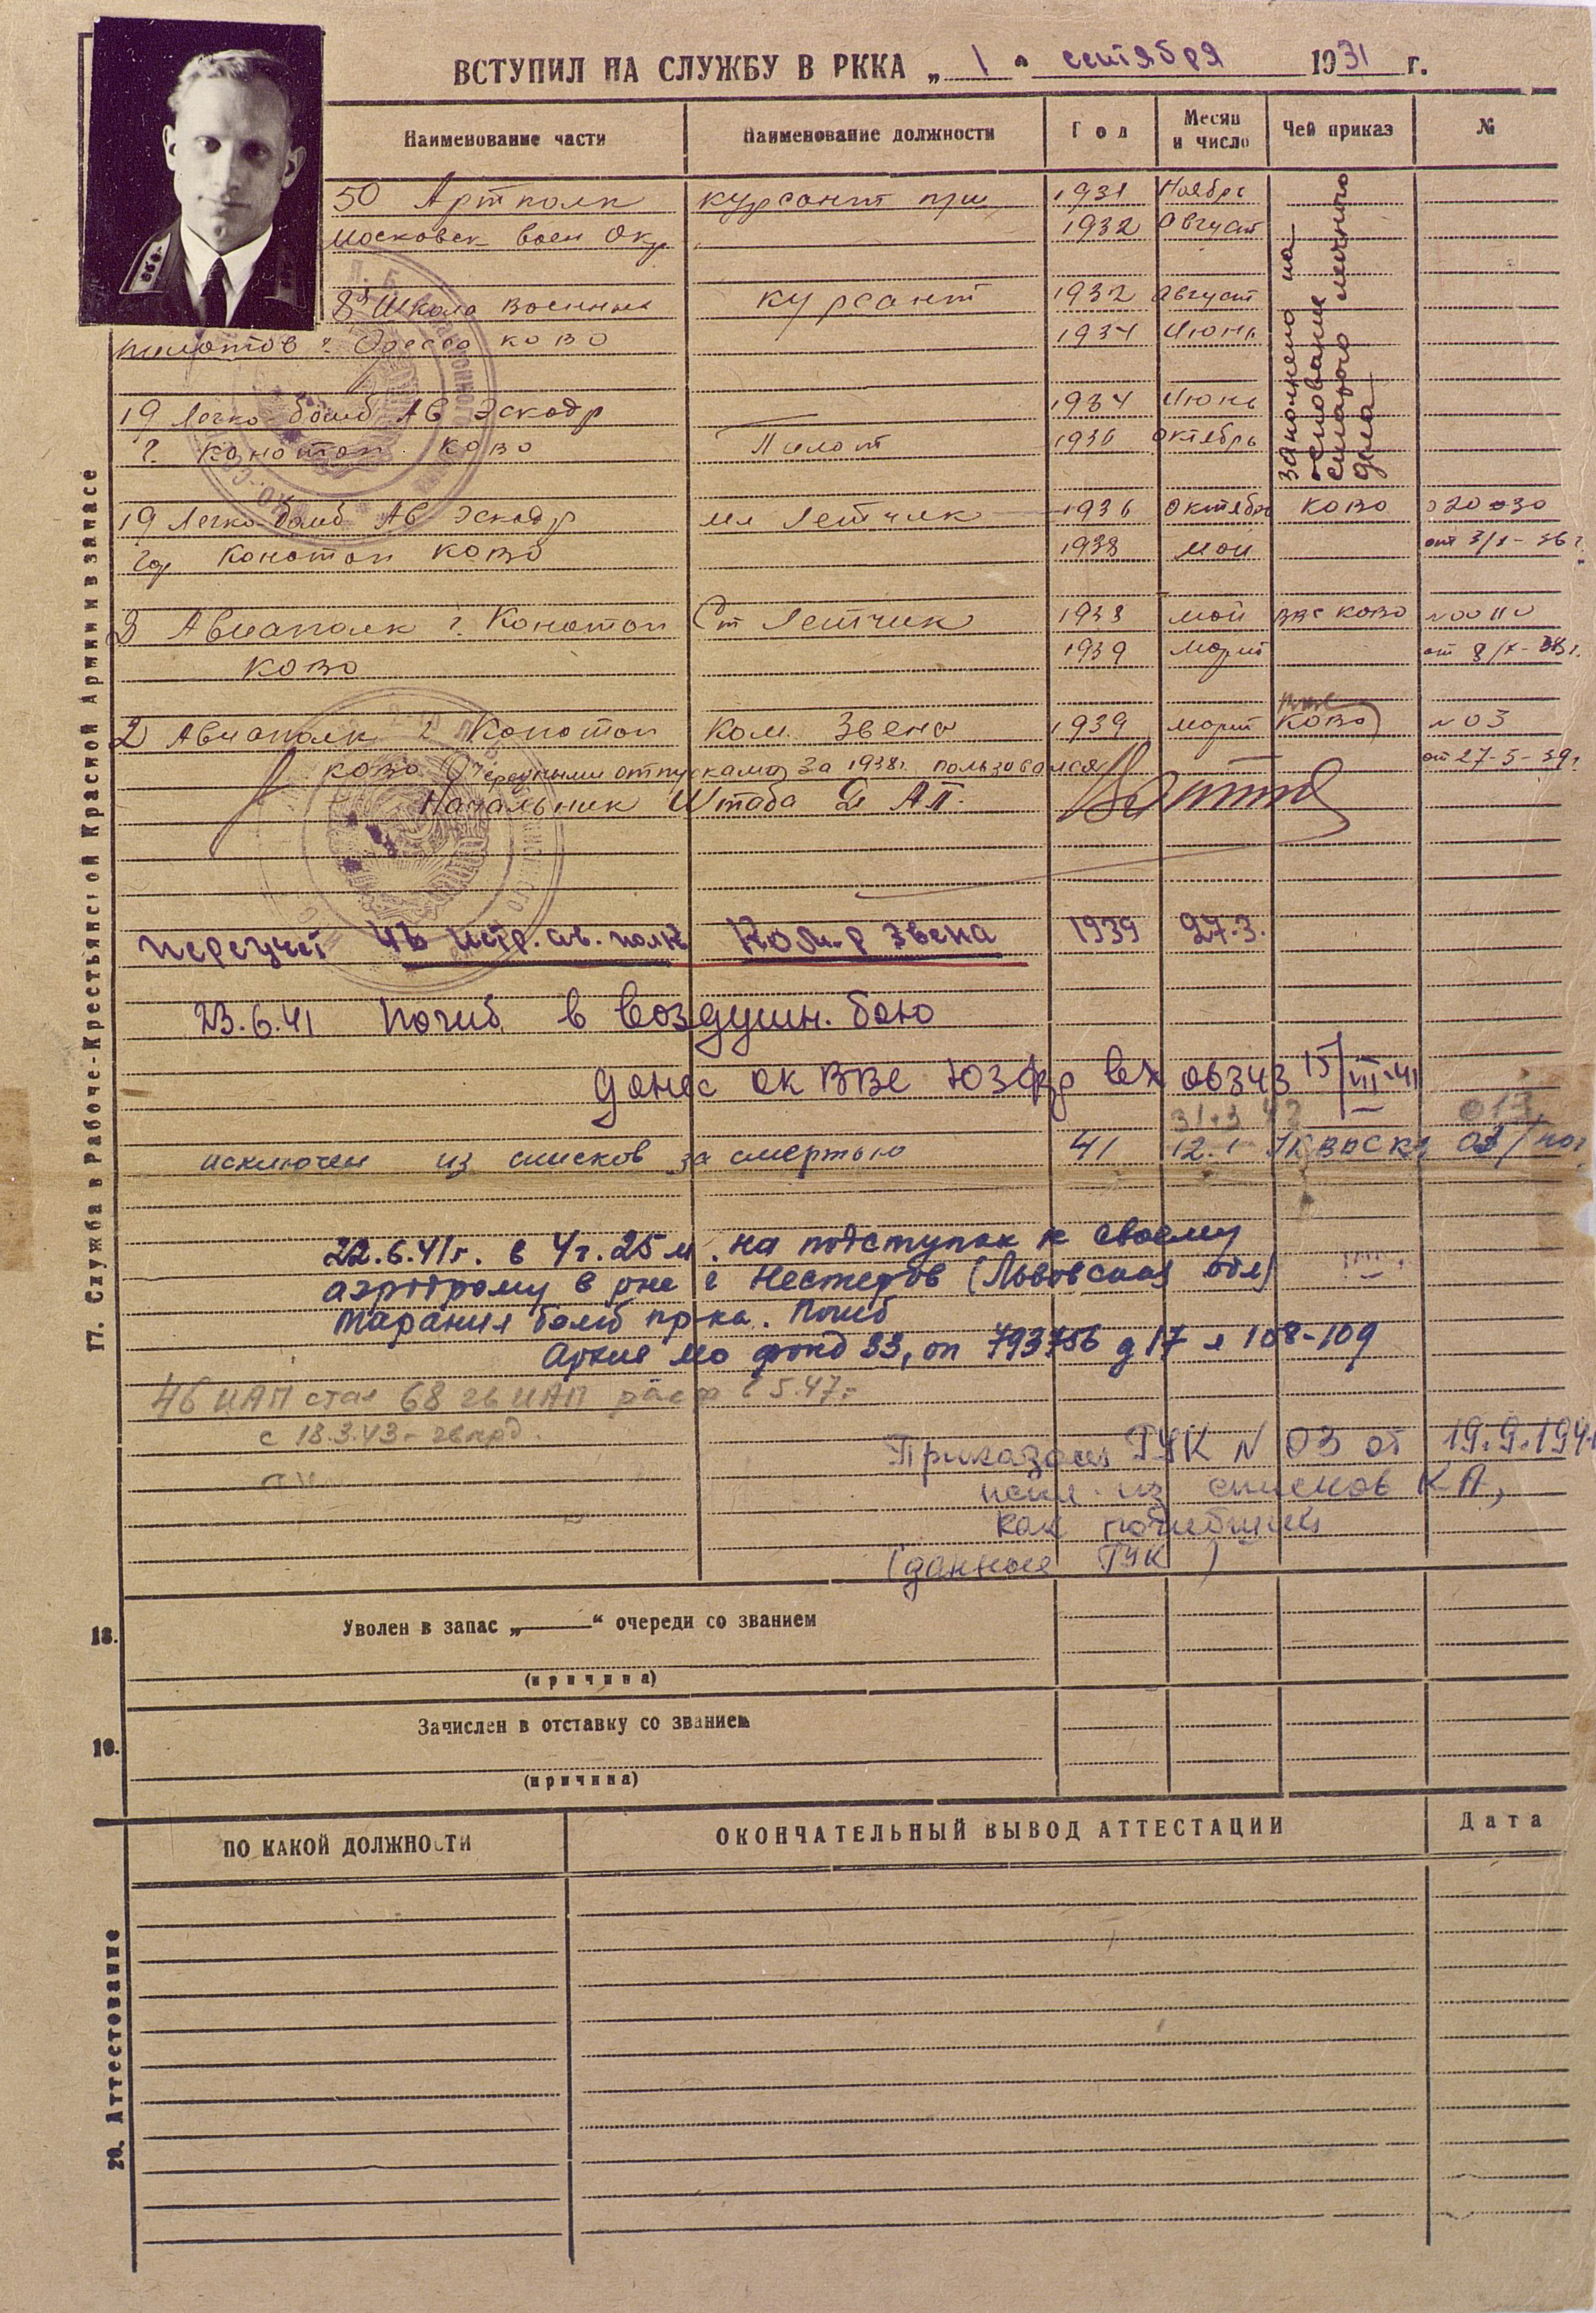 ВСТУПИЛ НА СЛУЖБУ В РККА „ 1 " сентября 1931 г.
Наименование части Наименование должности Год Месяц и число Чей приказ №
50 Артполк курсант при 1931 Ноябрь
Московск воен Окр 1932 Август
8я Школа военных курсант 1932 Август
пилотов г. Одесса КОВО 1934 Июнь
заполнено на
основание
старого личного
дела
19 Легко-бомб АВ Эскадр 1934 Июнь
г. Конотоп КОВО Пилот 1936 октябрь
19 Легко-бомб АВ Эскадр мл Летчик 1936 Октябрь КОВО
гор Конотоп КОВО 1938 май
Авиаполк г. Конотоп Ст Летчик 1938 май ВВС КОВО
КОВО 1939 март
2 Авиаполк г Конотоп Ком. Звена 1939 март КОВО №03
КОВО Очередными отпусками за 1938г. пользовался от 27-5-39г
Начальник Штаба 2 АП.
46 истр. ав. полк Ком-р звена 1939 27.3.
23.6.41 погиб в воздушн. бою
донес ок ВВС ЮЗФр вх 06343 15/VII-41
31.3 42 013
исключен из списков за смертью 41 12.1
22.6.41г. в 4г.25м. на подступах к своему
аэродрому в р-не г Нестеров (Львовская обл)
таранил бомб пр-ка. Погиб
Архив МО фонд 33, оп 793756 д 17 л 108-109
46 ИАП стал 68 гв ИАП расф с 5.47г
с 18.3.43г гвард.
Приказом ГУК N 03 от 19.9.194
искл. из списков КА,
как погибший
(данные ГУК)
17. Служба в Рабоче-Крестьянской Красной Армии и в запасе
18. Уволен в запас „——“ очереди со званием
(причина)
19. Зачислен в отставку со званием
(причина)
ПО КАКОЙ ДОЛЖНОСТИ ОКОНЧАТЕЛЬНЫЙ ВЫВОД АТТЕСТАЦИИ Дата
20. Аттестование